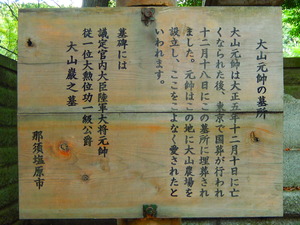 大山元帥の墓所
大山元帥は大正五年十二月十日に亡
くなられた後、東京で国葬が行われ
十二月十八日にこの墓所に埋葬され
ました。元帥はこの地に大山農場を
設立し、ここをこよなく愛されたと
いわれます。
墓碑には
議定官内大臣陸軍大将元帥
従一位大勲位功一級公爵
大山巌之墓
那須塩原市